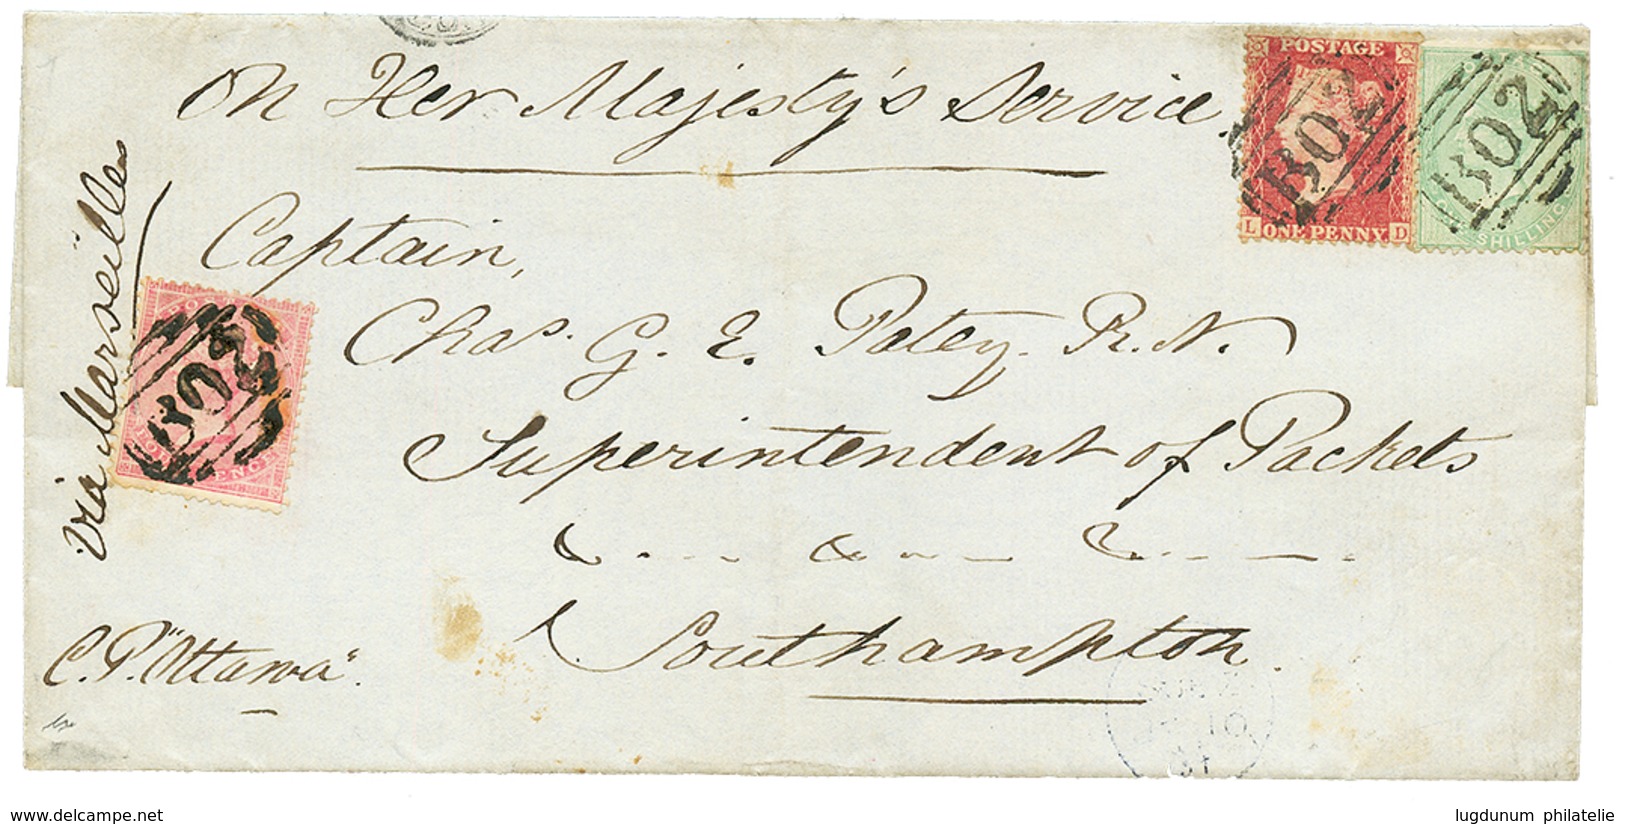 On Her Majesty's Service.
via Marseilles
POSTAGE
B02
L ONE PENNY D
B02
SHILLING
Captain,
Chas. G. E. Patey. R. N.
B02
PENCE
Superintendent of Packets
Southampton.
C. P. "Ottawa".
www.delcampe.net
lugdunum philatelie